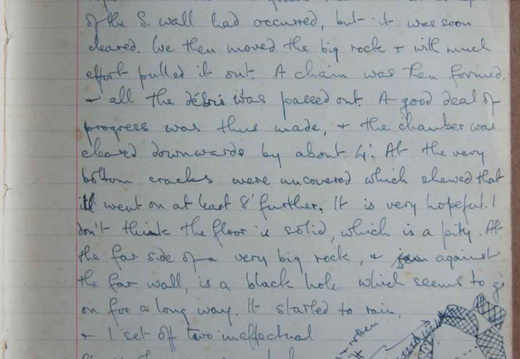 of the S. wall had occurred, but it was soon
cleared. We then moved the big rock + with much
effort pulled it out. A chain was then formed,
+ all the débris was passed out. A good deal of
progress was thus made, + the chamber was
cleared downwards by about 4'. At the very
bottom cracks were uncovered which shewed that
it went on at least 8' further. It is very hopeful. I
don't think the floor is solid, which is a pity. At
the far side of a very big rock, + against
the far wall, is a black hole which seems to go
on for a long way. It started to rain,
+ I set off two ineffectual